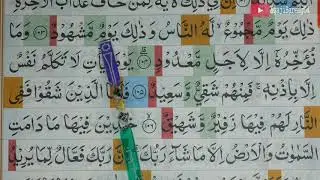 ذٰلِكَ لَاٰيَةً لِّمَنْ خَافَ عَذَابَ الْاٰخِرَةِ
ذٰلِكَ يَوْمٌ مَّجْمُوْعٌ لَّهُ النَّاسُ وَذٰلِكَ يَوْمٌ مَّشْهُوْدٌ ﴿١٠٣﴾ وَمَا
نُؤَخِّرُهٗٓ اِلَّا لِاَجَلٍ مَّعْدُوْدٍ ﴿١٠٤﴾ يَوْمَ يَاْتِ لَا تَكَلَّمُ نَفْسٌ
اِلَّا بِاِذْنِهٖ ۚ فَمِنْهُمْ شَقِيٌّ وَّسَعِيْدٌ ﴿١٠٥﴾ فَاَمَّا الَّذِيْنَ شَقُوْا فَفِى
النَّارِ لَهُمْ فِيْهَا زَفِيْرٌ وَّشَهِيْقٌ ﴿١٠٦﴾ خٰلِدِيْنَ فِيْهَا مَا دَامَتِ
السَّمٰوٰتُ وَالْاَرْضُ اِلَّا مَا شَآءَ رَبُّكَ ۗ اِنَّ رَبَّكَ فَعَّالٌ لِّمَا يُرِيْدُ